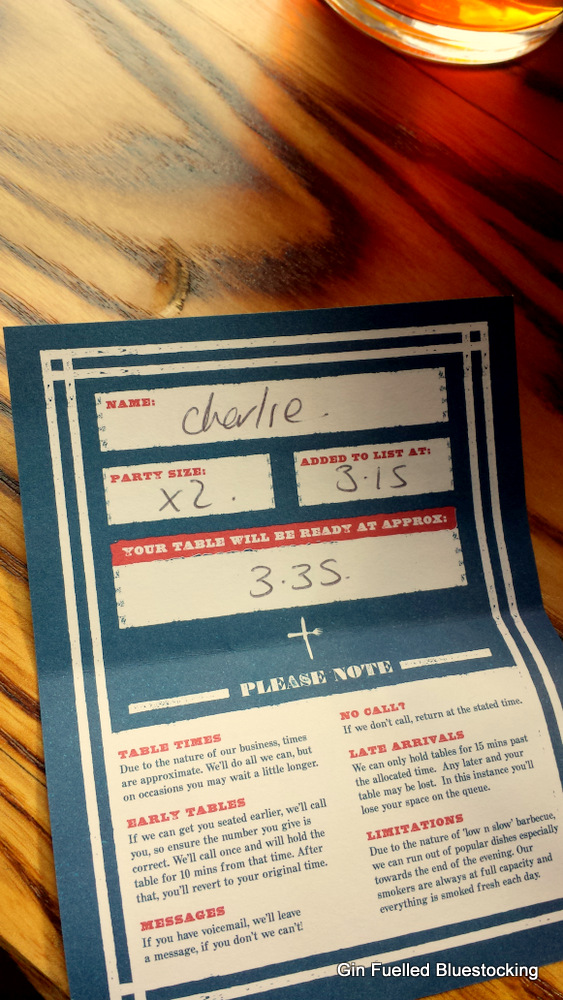 NAME:
charlie.
PARTY SIZE:
x2.
ADDED TO LIST AT:
3.15
YOUR TABLE WILL BE READY AT APPROX:
3.35.
PLEASE NOTE
TABLE TIMES
Due to the nature of our business, times
are approximate. We'll do all we can, but
on occasions you may wait a little longer.
EARLY TABLES
If we can get you seated earlier, we'll call
you, so ensure the number you give is
correct. We'll call once and will hold the
table for 10 mins from that time. After
that, you'll revert to your original time.
MESSAGES
If you have voicemail, we'll leave
a message, if you don't we can't!
NO CALL?
If we don't call, return at the stated time.
LATE ARRIVALS
We can only hold tables for 15 mins past
the allocated time. Any later and your
table may be lost. In this instance you'll
lose your space on the queue.
LIMITATIONS
Due to the nature of 'low n slow' barbecue,
we can run out of popular dishes especially
towards the end of the evening. Our
smokers are always at full capacity and
everything is smoked fresh each day.
Gin Fuelled Bluestocking